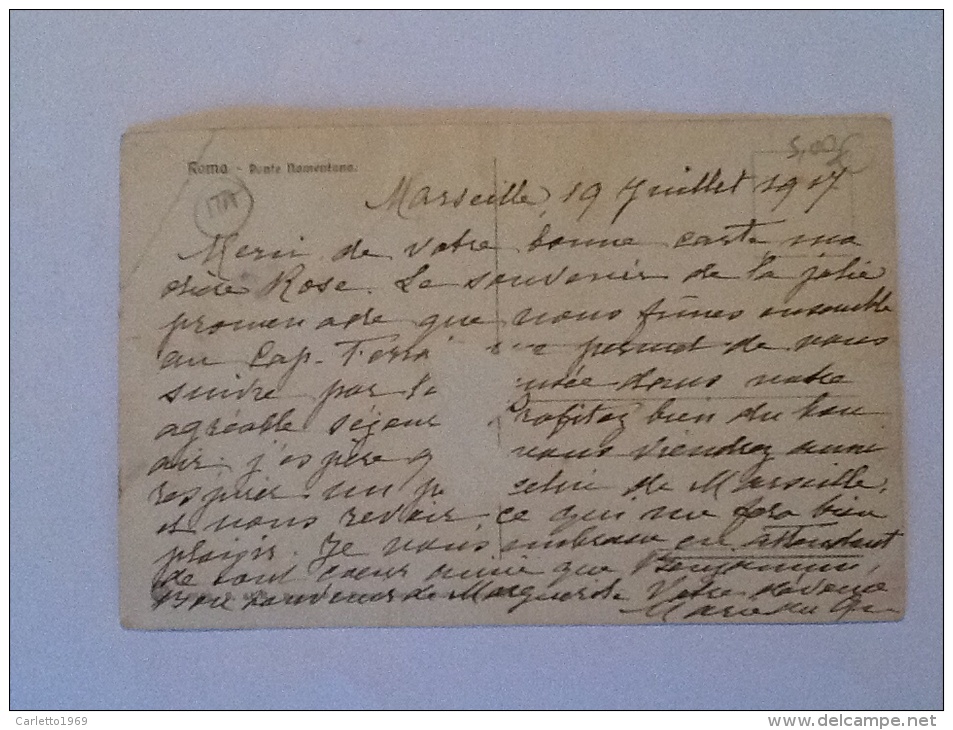 5,00€
Roma - Ponte Nomentano.
ITA
Marseille, 19 Juillet 1917
Merci de votre bonne carte ma
chère Rose. Le souvenir de la jolie
promenade que nous fîmes ensemble
au Cap-Ferra permet de vous
suivre par la dans votre
agréable séjour rofitez bien du bon
air. j'espère q vous viendrez aussi
respirer un p celui de Marseille,
et nous revoir, ce qui me fera bien
plaisir. Je vous embrasse en attendant
de tout cœur ainsi que Benjamin,
Bon souvenir de Marguerite Votre dévouée
Carletto1969
www.delcampe.net